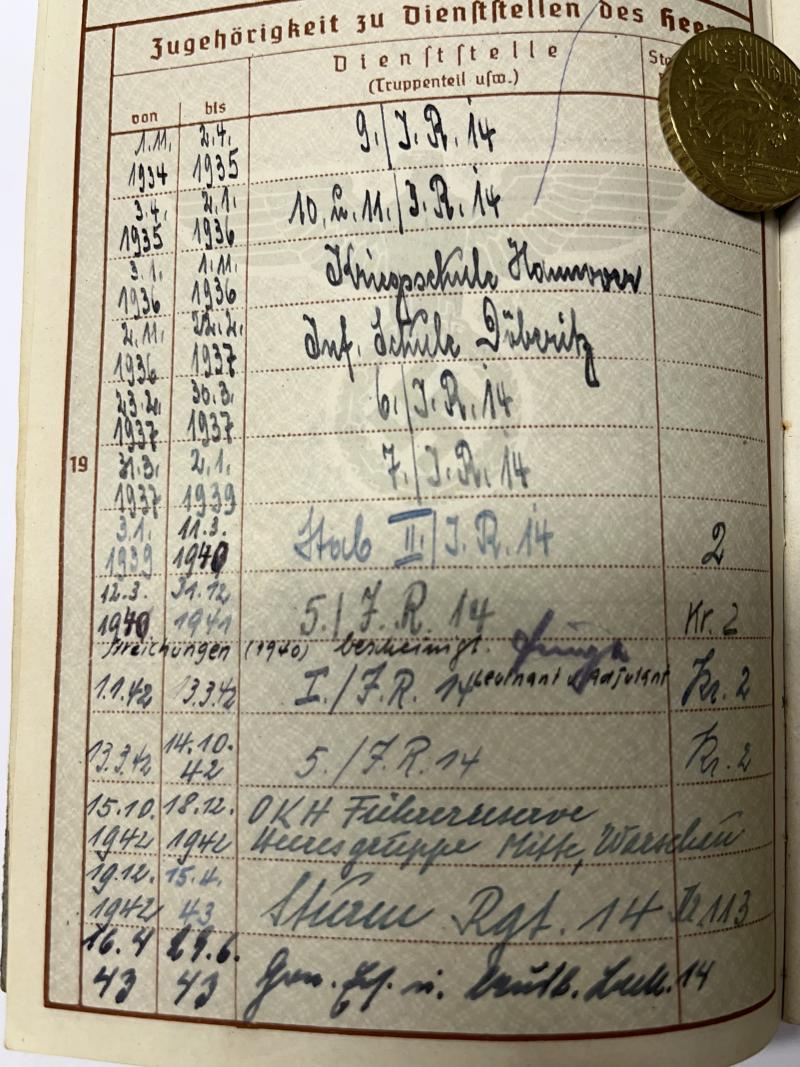 Zugehörigkeit zu Dienststellen des Heer
von bis Dienststelle
(Truppenteil usw.)
1.11. 1934 2.4. 1935 9./J.R. 14
3.4. 1935 2.1. 1936 10. u. 11./J.R. 14
3.1. 1936 1.11. 1936 Kriegsschule Hannover
2.11. 1936 22.2. 1937 Inf. Schule Döberitz
23.2. 1937 30.3. 1937 6./J.R. 14
19
31.3. 1937 2.1. 1939 7./J.R. 14
3.1. 1939 11.3. 1940 Stab II./J.R. 14 2
12.3. 1940 31.12 1941 5./J.R. 14 Kr. 2
Streichungen (1940) bescheinigt.
Leutnant u. Adjutant
1.1.42 13.3.42 I./J.R. 14 Kr. 2
13.3.42 14.10. 42 5./J.R. 14 Kr. 2
15.10. 1942 18.12. 1942 OKH Führerreserve
Heeresgruppe Mitte, Warschau
19.12. 1942 15.4. 43 Sturm Rgt. 14 113
16.4 43 29.6. 43 Gren. u. 14